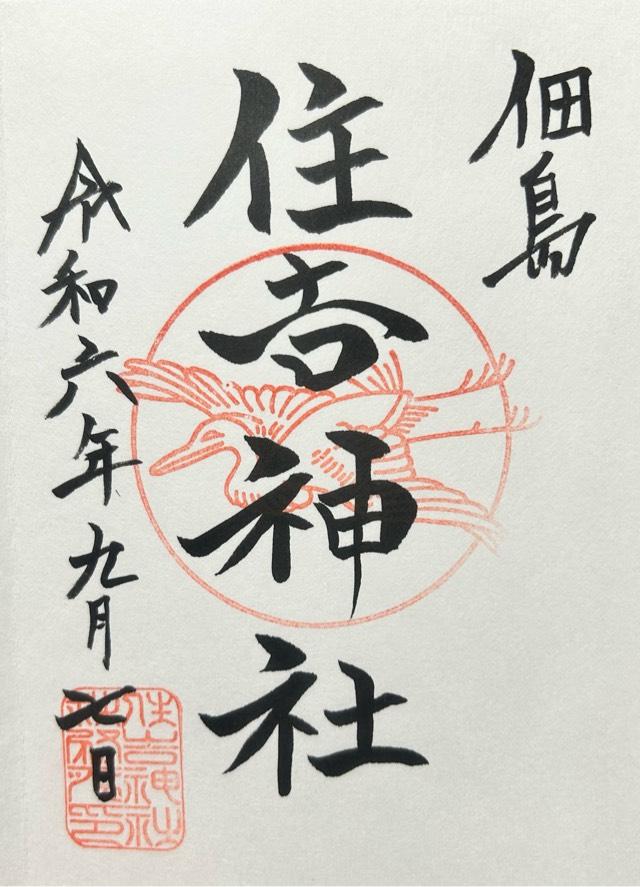 佃島
住吉神社
令和六年九月七日
住吉神社